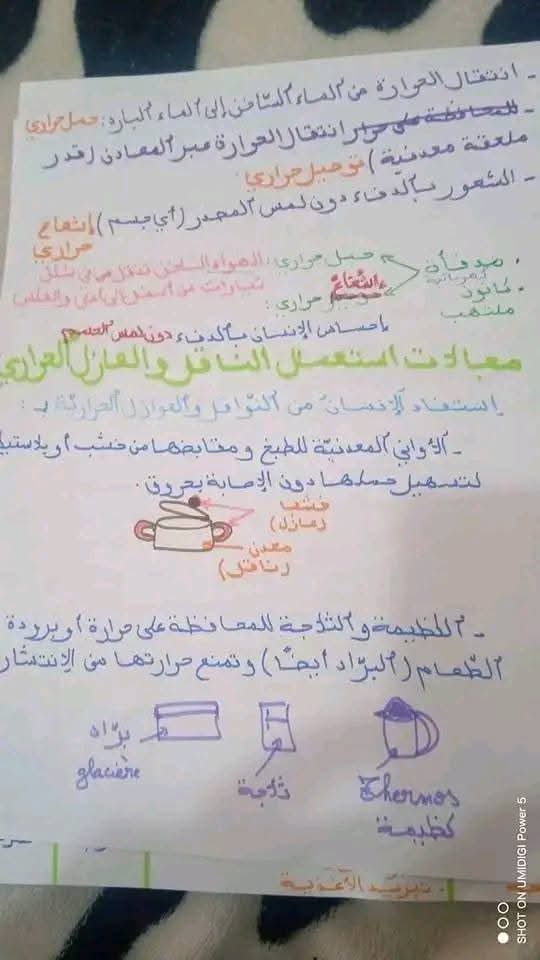 - انتقال الحرارة من الماء الساخن إلى الماء البارد: حمل حراري
- للمحافظة على حرار انتقال الحرارة عبر المعادن (قدر
ملعقة معدنية) توصيل حراري.
- الشعور بالدفء دون لمس المصدر (أي جسم) إشعاع
حراري
. مدفأة كهربائية
. كانون ملتهب
حمل حراري: الهواء الساخن تنتقل في شكل
تيارات من أسفل إلى أعلى والعكس
إشعاع حراري:
إحساس الإنسان بالدفء دون لمس الجسم
مجالات استعمال الناقل والعازل الحراري
إستفاد الإنسان من النّواقل والعوازل الحراريّة بـ:
- الأواني المعدنيّة للطبخ ومقابضها من خشب أو بلاستيك
لتسهيل حملها دون الإصابة بحروق.
خشب
(عازل)
معدن
(ناقل)
- الكظيمة والثلاجة للمحافظة على حرارة أو برودة
الطّعام (البرّاد أيضًا) وتمنع حرارتها من الإنتشار
برّاد
glacière
ثلاجة
Thermos
كظيمة
. تبريد الأغذية
SHOT ON UMIDIGI Power 5